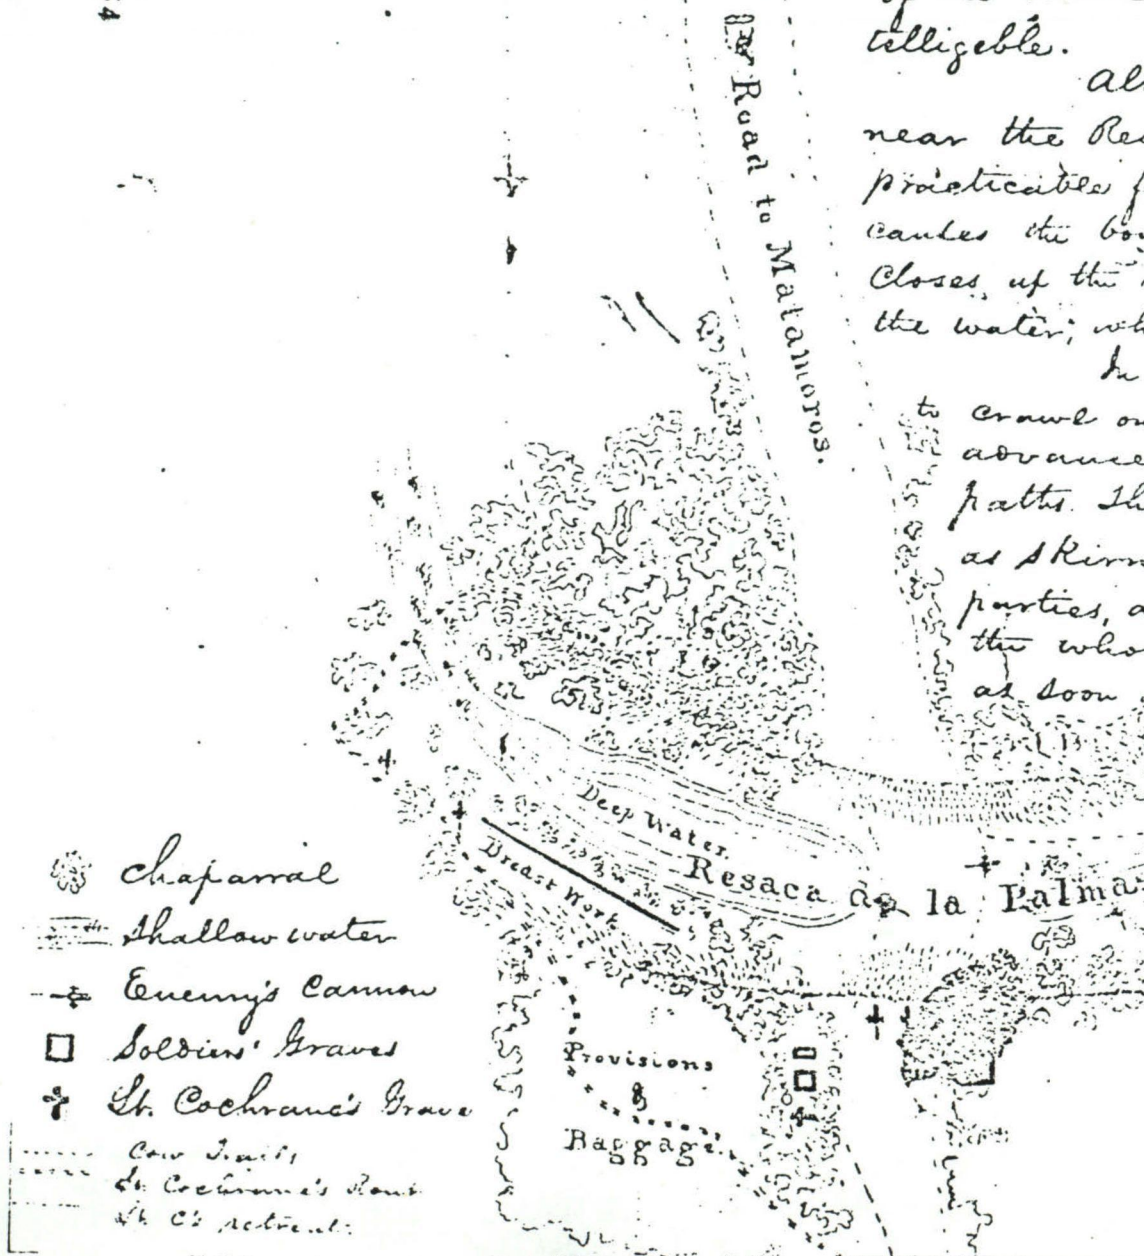 telligeble.
near the
practicable
causes the
Closes up the
the water;
In
to crawl
advance
paths.
as
parties,
the
as soon
Road to Matamoros.
Deep Water.
Resaca de la Palma
Breast Work
Provisions
&
Baggage.
Chaparral
Shallow water
Enemy's Cannon
Soldiers' Graves
Lt. Cochrane's Grave
Cow Trails
Lt. Cochrane's Rout
Lt. C's retreat